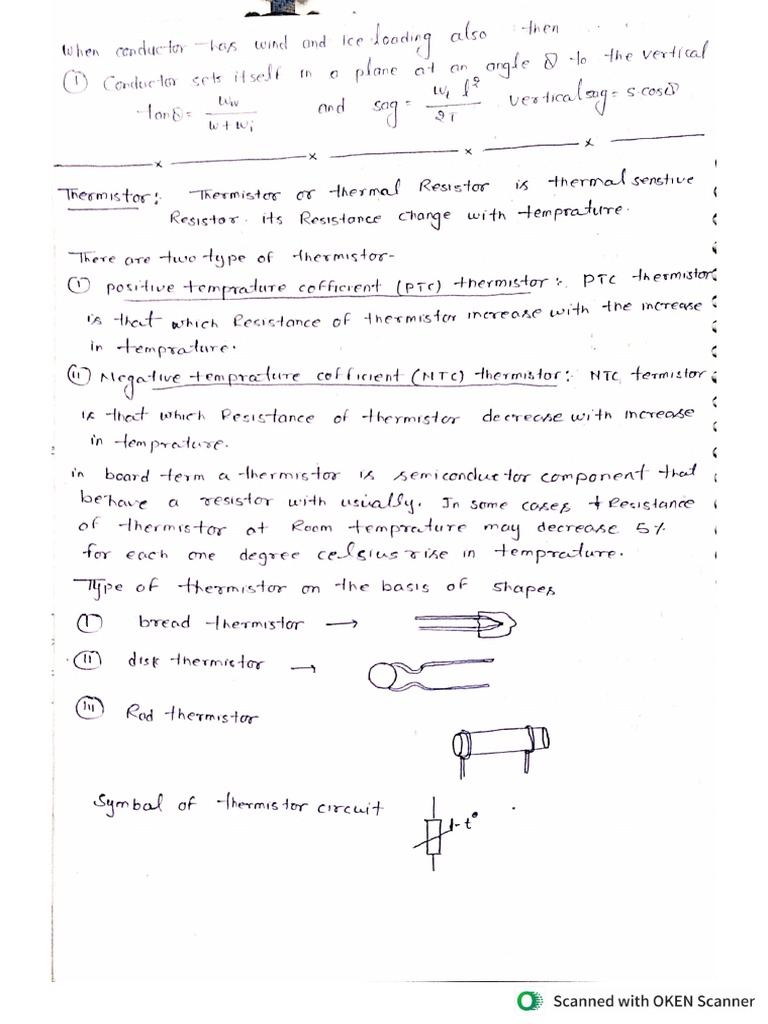 When conductor has wind and ice loading also then
(i) Conductor sets itself in a plane at an angle θ to the vertical
tanθ = Ww / W + Wi and sag = Wt l² / 2T vertical sag = s.cosθ
Thermistor:- Thermistor or thermal Resistor is thermal senstive
Resistor. its Resistance change with temprature.
There are two type of thermistor-
(i) positive temprature cofficient (PTC) thermistor:- PTC thermistor
is that which Resistance of thermistor increase with the increase
in temprature.
(ii) Negative temprature cofficient (NTC) thermistor:- NTC termistor
is that which Resistance of thermistor decrease with increase
in temprature.
in board term a thermistor is semiconductor component that
behave a resistor with usually. In some cases Resistance
of thermistor at Room temprature may decrease 5%
for each one degree celsius rise in temprature.
Type of thermistor on the basis of shapes
(i) bread thermistor →
(ii) disk thermistor →
(iii) Rod thermistor
Symbol of thermistor circuit
-t°
Scanned with OKEN Scanner